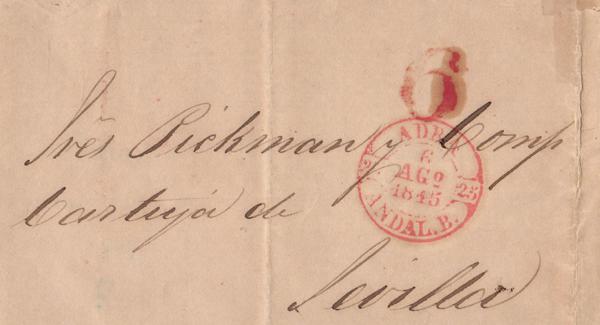 6
Srês Pickman y Comp
Cartuja de
Sevilla
ADRA
6
AGO
1845
25
ANDAL. B.